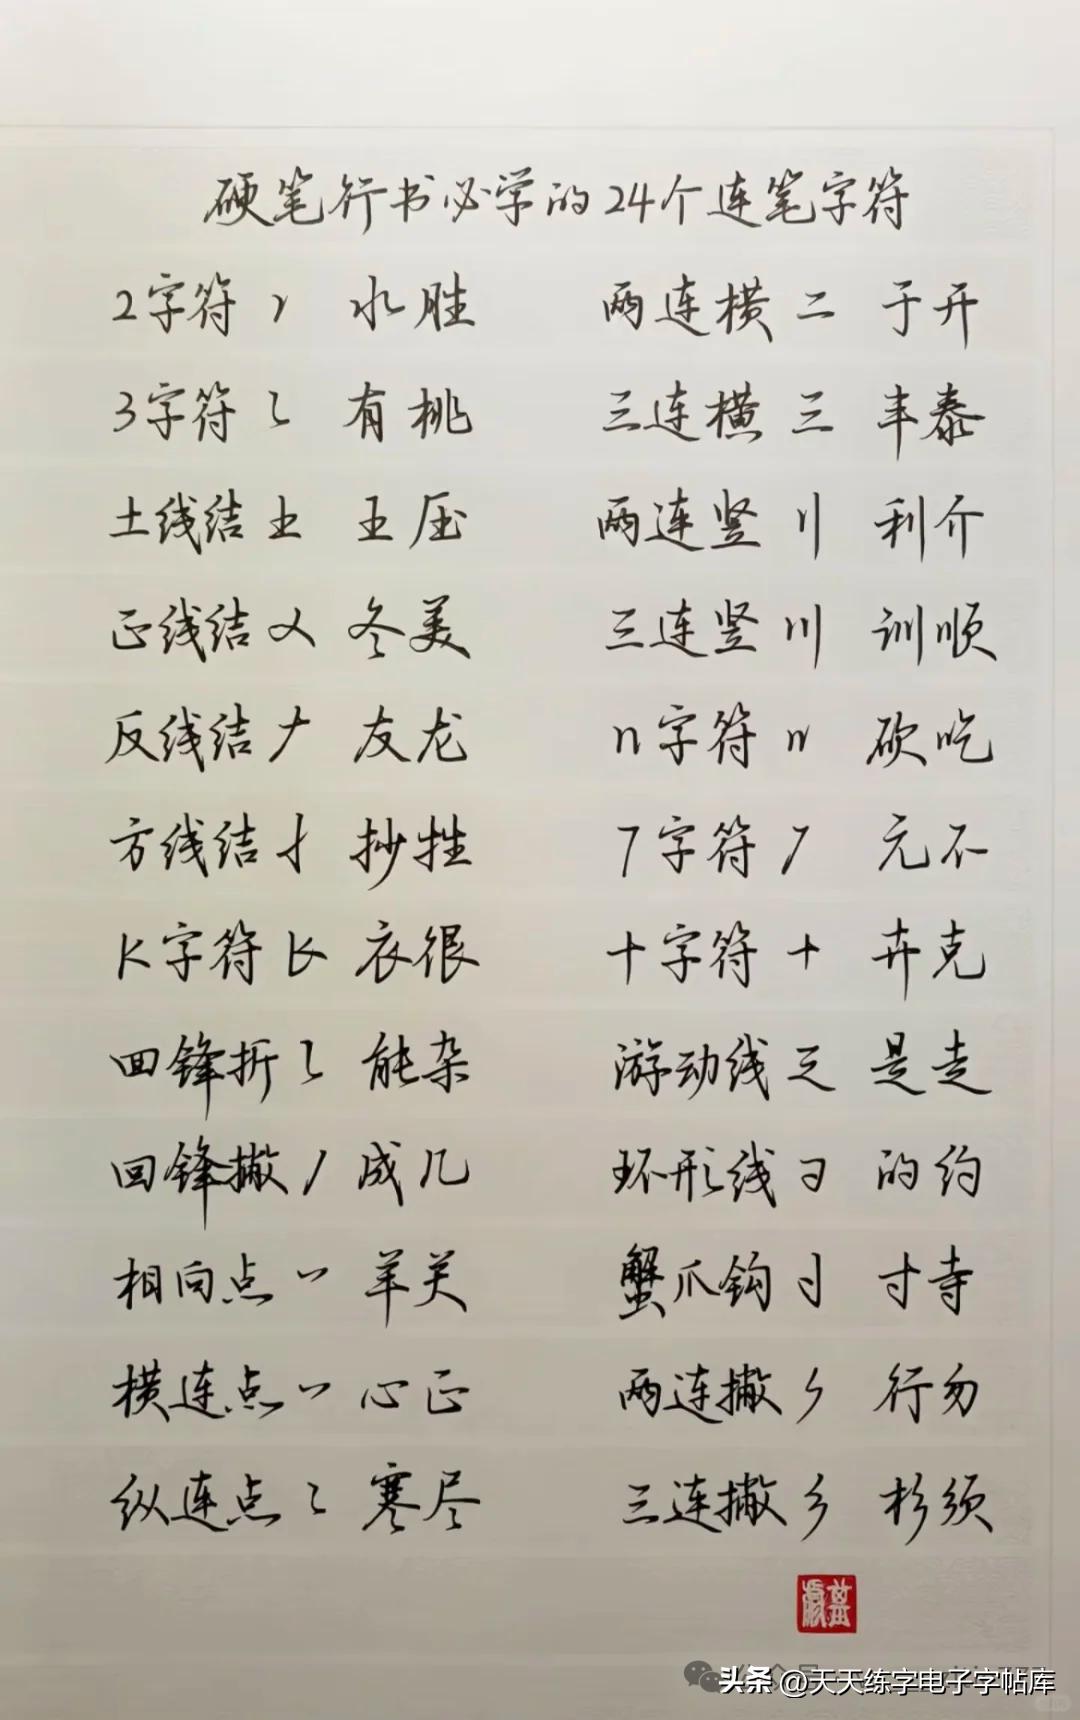 硬笔行书必学的24个连笔字符
2字符 水胜
两连横 二 于开
3字符 有桃
三连横 三 丰泰
土线结 土 王压
两连竖 〢 利介
正线结 冬美
三连竖 川 训顺
反线结 友龙
n字符 n 砍吃
方线结 抄牲
7字符 7 元不
K字符 K 衣很
十字符 十 卉克
回锋折 能杂
游动线 是走
回锋撇 丿 成几
环形线 的约
相向点 羊关
蟹爪钩 寸寺
横连点 心正
两连撇 行勿
纵连点 寒尽
三连撇 彡 杉须
头条 @天天练字电子字帖库